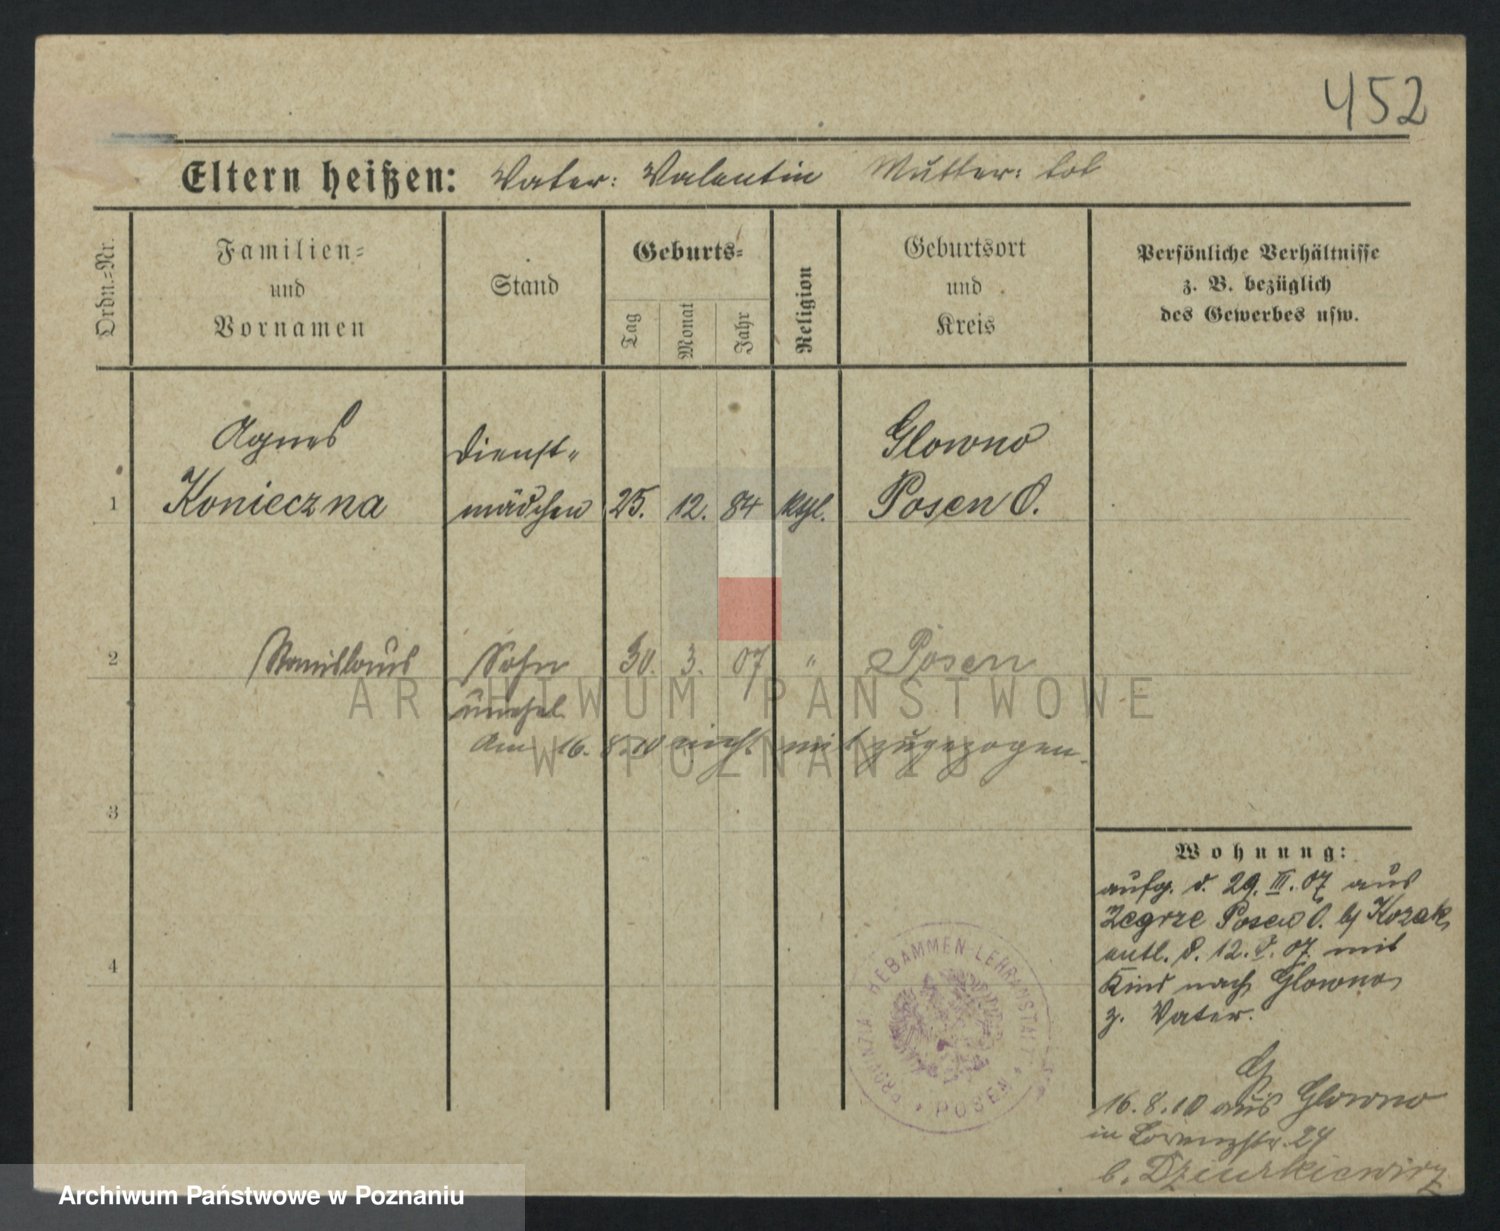 452
Eltern heißen: Vater: Valentin Mutter: tot
Ordn.-Nr.
Familien-
und
Vornamen
Stand
Geburts-
Tag
Monat
Jahr
Religion
Geburtsort
und
Kreis
Persönliche Verhältnisse
z. B. bezüglich
des Gewerbes usw.
Agnes Dienst- Glowno
1 Konieczna mädchen 25. 12. 84 kthl. Posen O.
2 Stanislaus Sohn 30. 3. 07 " Posen
unehel.
Am 16. 8. 10 nicht mit zugezogen.
3
4
Wohnung:
aufg. d. 29. III. 07 aus
Zegrze Posen O. b/ Kozak,
entl. d. 12. V. 07 mit
Kind nach Glowno
z. Vater.
16. 8. 10 aus Glowno
in 24
b. Dziurkiewicz
PROVINZIAL HEBAMMEN-LEHRANSTALT
POSEN
ARCHIWUM PAŃSTWOWE
W POZNANIU
Archiwum Państwowe w Poznaniu